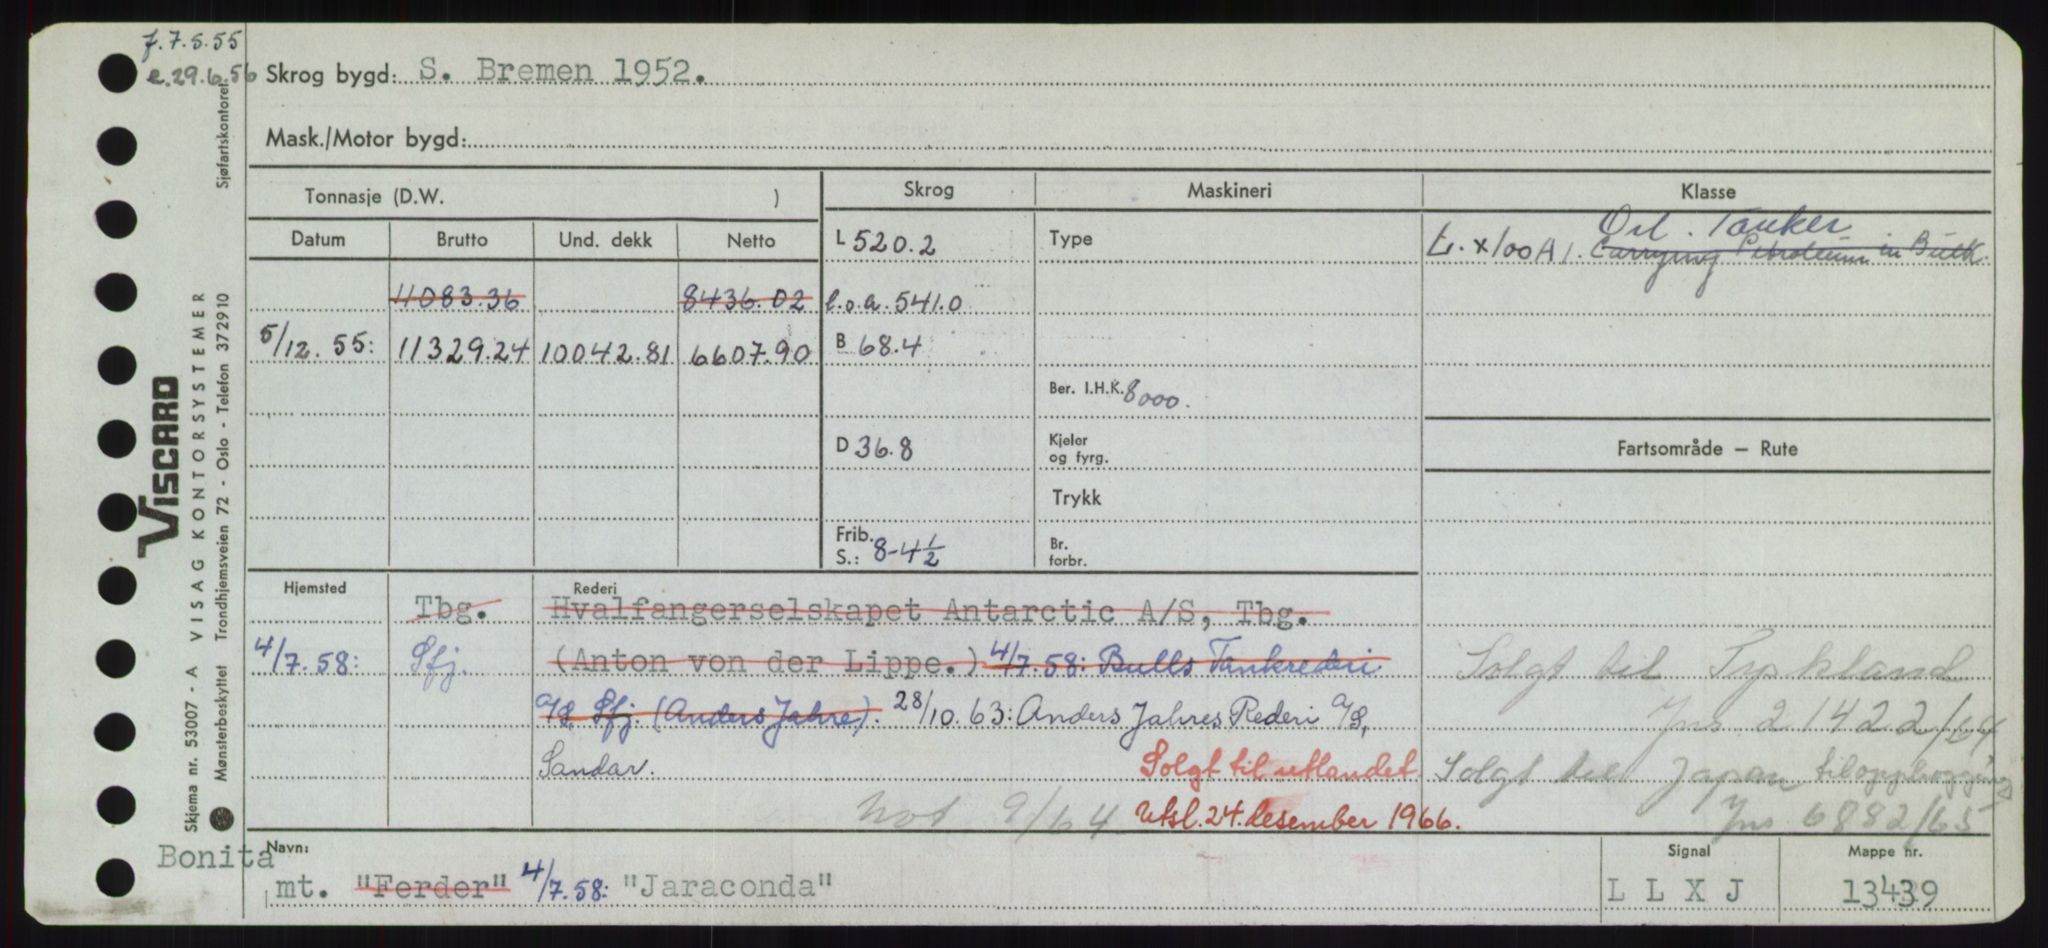 f. 7.5.55
e. 29.6.56
Sjøfartskontoret.
VISCARD
VISAG KONTORSYSTEMER
Skjema nr. 53007 - A
Mønsterbeskyttet Trondhjemsveien 72 - Oslo - Telefon 372910
Skrog bygd: S. Bremen 1952.
Mask./Motor bygd:
Tonnasje (D.W. )
Skrog
Maskineri
Klasse
Datum Brutto Und. dekk Netto
11083.36 8436.02
5/12. 55: 11329.24 10042.81 6607.90
L 520.2
l.o.a. 541.0
B 68.4
D 36.8
Frib.
S.: 8-4½
Type
Ber. I.H.K. 8000.
Kjeler
og fyrg.
Trykk
Br.
forbr.
Oil. Tanker
Ł. x100A1. Carrying Petroleum in Bulk.
Fartsområde — Rute
Hjemsted
Rederi
Tbg. Hvalfangerselskapet Antarctic A/S, Tbg.
4/7. 58: Sfj. (Anton von der Lippe.) 4/7. 58: Bulls Tankrederi
A/S Sfj. (Anders Jahre). 28/10. 63: Anders Jahres Rederi A/S,
Sandar.
Solgt til utlandet
Utsl. 24. desember 1966.
Not 9/64
Solgt til Tyskland
Jns 21422/64
Solgt til Japan til opphogging
Jns 6882/65
Bonita
Navn:
mt. "Ferder" 4/7.58: "Jaraconda"
Signal
L L X J
Mappe nr.
13439